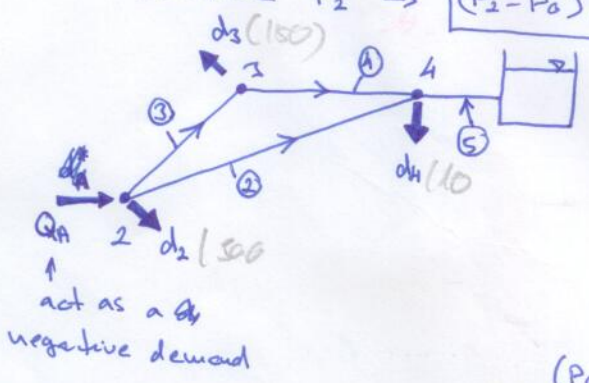 (P₂-P₀)
d₃ (150)
3
④ 4
③
②
⑤
d₄ (10
Q_A 2 d₂ (500
↑
act as a
negative demand
(P